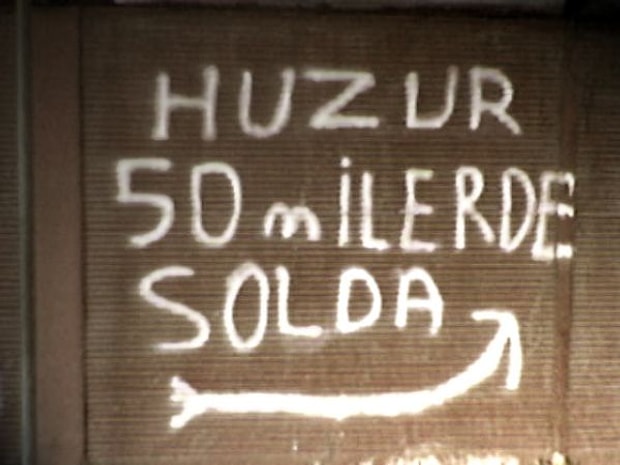 HUZUR
50 m İLERDE
SOLDA